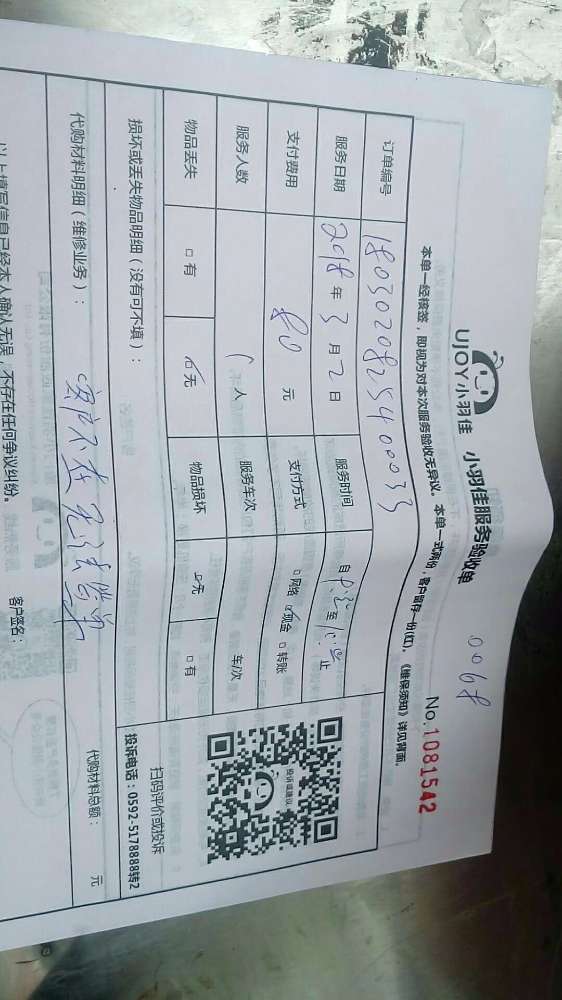 UJOY小羽佳 小羽佳服务验收单
0068
No.1081542
本单一经核签，即视为对本次服务验收无异议。本单一式两份，客户留存一份(红)。《维保须知》详见背面。
订单编号 1803020825400033
服务日期 2018年3月2日 服务时间 自 至 止
支付费用 80元 支付方式 □网络 ☑现金 □转账
服务人数 1人 服务车次 车/次
物品丢失 □有 ☑无 物品损坏 ☑无 □有
投诉或建议
扫码评价或投诉
投诉电话：0592-5178888转2
损坏或丢失物品明细（没有可不填）：
代购材料明细（维修业务）：
客户不在 无法签单
代购材料总额： 元
以上填写信息已经本人确认无误，不存在任何争议纠纷。 客户签名：